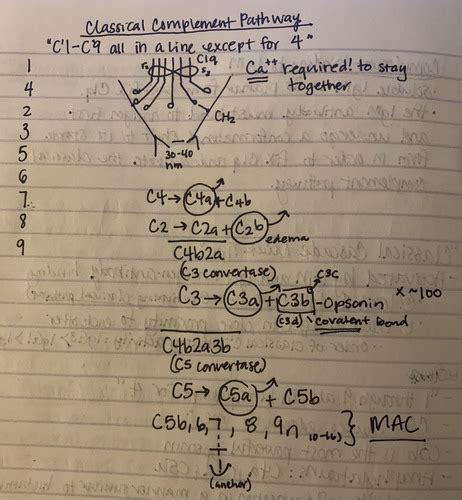 Classical Complement Pathway
"C'1-C'9 all in a line except for 4"
1
4
2
3
5
6
7
8
9
C1q
Ca++ required! to stay together
CH2
30-40 nm
C4 → C4a + C4b
C2 → C2a + C2b
edema
C4b2a
(C3 convertase)
C3c
C3 → C3a + C3b - Opsonin x ~100
(C3d) covalent bond
C4b2a3b
(C5 convertase)
C5 → C5a + C5b
C5b, 6, 7, 8, 9n (10-16) } MAC
(anchor)